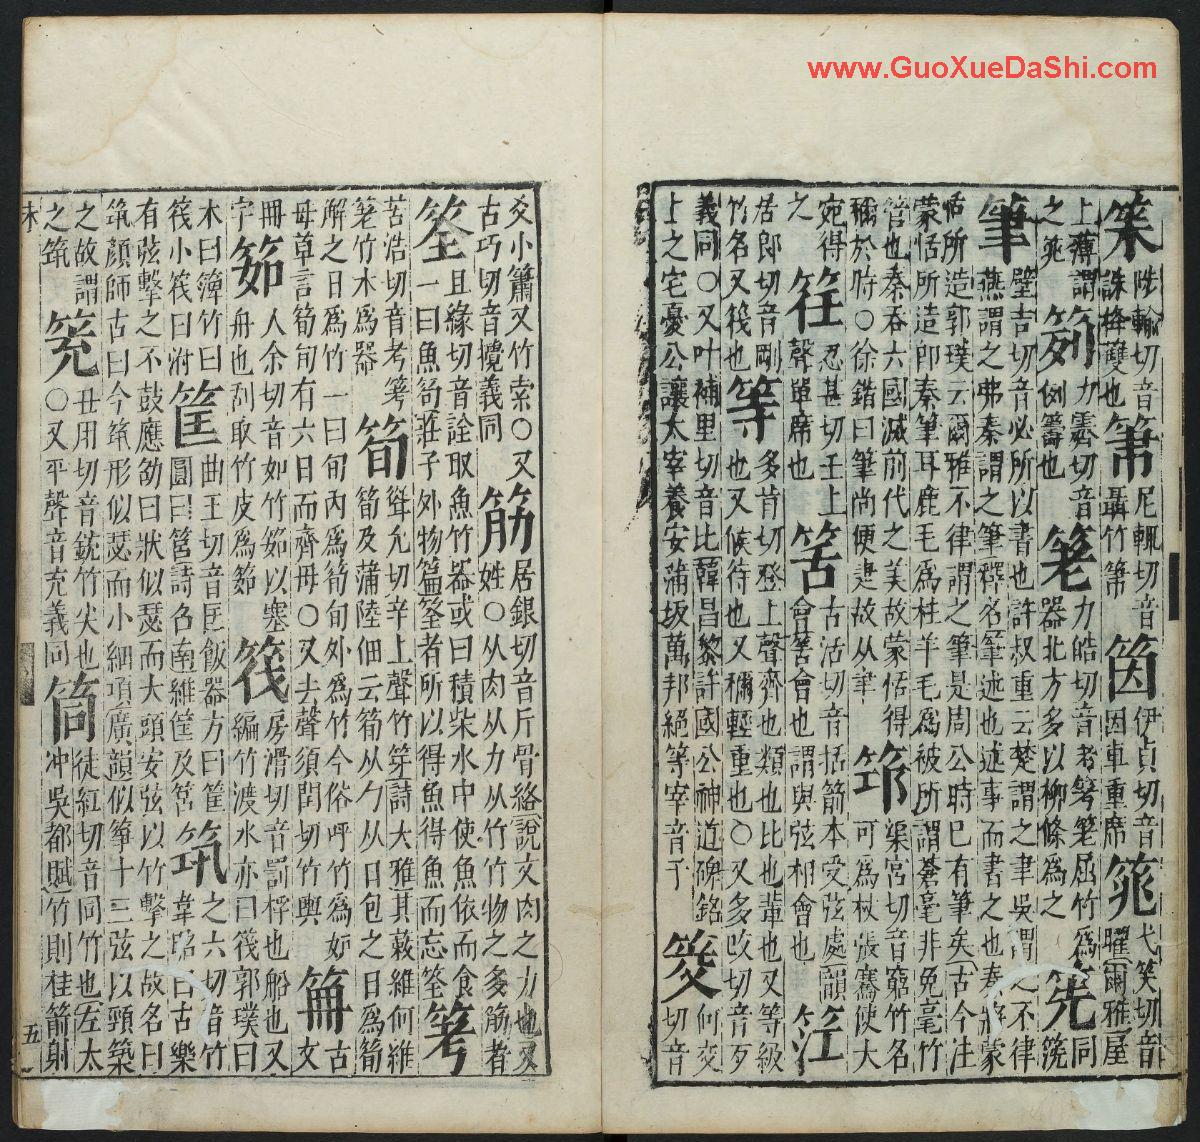 www.GuoXueDaShi.com
陟輸切音誅桻雙也尼輒切音聶竹筃伊真切音因車重席筄弋笑切音曜爾雅屋
上薄謂之筄力霽切音例籌也力皓切音考屈竹爲器北方多以柳條爲之筅同箲
筆壁吉切音必所以書也許叔重云楚謂之聿吳謂之不律燕謂之弗秦謂之筆釋名筆述也述事而書之也秦將蒙
恬所造郭璞云爾雅不律謂之筆是周公時已有筆矣古今注蒙恬所造即秦筆耳鹿毛爲柱羊毛爲被所謂蒼毫非兔毫竹
管也秦吞六國滅前代之美故蒙恬得稱於時○徐鍇曰筆尚便疌故从聿筇渠宮切音窮竹名可爲杖張騫使大
宛得之忍甚切壬上聲單席也筈古活切音括箭本受弦處韻會筈會也謂與弦相會也
居郎切音剛竹名又筏也等多肯切登上聲齊也類也比也輩也又等級也又候待也又稱輕重也○又多改切音歹
義同○又叶補里切音比韓昌黎許國公神道碑銘上之宅憂公讓太宰養安蒲坂萬邦絕等宰音子筊何交切音
爻小簫又竹索○又古巧切音攪義同筋居銀切音斤骨絡說文肉之力也又姓○从肉从力从竹竹物之多筋者
筌且緣切音詮取魚竹器或曰積柴水中使魚依而食一曰魚笱莊子外物篇筌者所以得魚得魚而忘筌
苦浩切音考竹木爲器筍聳允切辛上聲竹芽詩大雅其蔌維何維筍及蒲陸佃云筍从勹从日包之日爲筍
解之日爲竹一曰旬內爲筍旬外爲竹今俗呼竹爲妒母草言筍旬有六日而齊母○又去聲須閏切竹輿笧古文
冊字筎人余切音如竹筎以塞舟也刮取竹皮爲筎筏房滑切音罰桴也船也又編竹渡水亦曰筏郭璞曰
木曰簰竹曰筏小筏曰泭筐曲王切音匡飯器方曰筐圓曰筥詩召南維筐及筥筑之六切音竹韋昭曰古樂
有弦擊之不鼓應劭曰狀似瑟而大頭安弦以竹擊之故名曰筑顏師古曰今筑形似瑟而小細項廣韻似箏十三弦以頸築
之故謂之筑丑用切音銃竹尖也○又平聲音充義同筒徒紅切音同竹也左太冲吳都賦竹則桂箭射
五